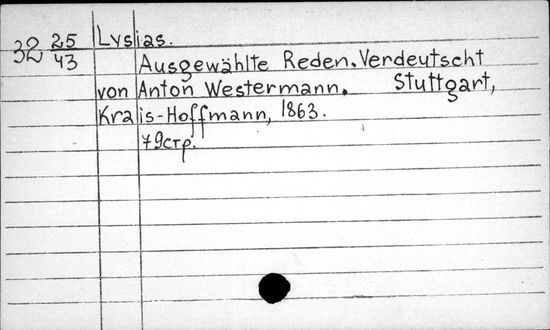 32 25/43
Lysias.
Ausgewählte Reden. Verdeutscht
von Anton Westermann. Stuttgart,
Krais-Hoffmann, 1863.
79стр.